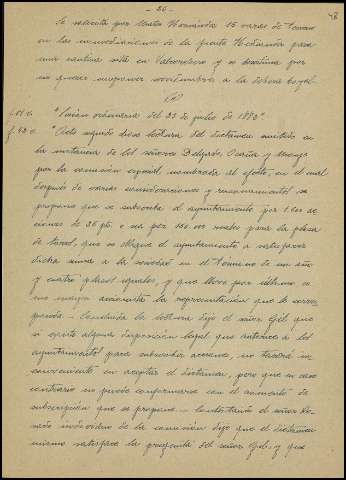 - 56 -
48
Se solicita por Mateo Hernández 15 varas de terreno
en las inmediaciones de la fuente Hedionda para
una cantina sita en Valverdejo y se desestima por
no querer imponer servidumbre a la dehesa boyal.
f. 61 v.
"Sesión ordinaria del 23 de julio de 1882".
f. 62 v.
"Acto seguido diose lectura del dictamen emitido en
la instancia de los señores Delgado, Ocaña y Monge
por la comisión especial nombrada al efecto, en el cual
después de varias consideraciones y razonamientos se
propone que se subscriba el ayuntamiento por 1.600 ac
ciones de 25 pts. o sea por 160.000 reales para la plaza
de toros, que se obligue el ayuntamiento a satisfacer
dicha suma a la sociedad en el término de un año
y cuatro plazos iguales, y que lleve por último co
mo mayor accionista la representación que le corres
ponda - Concluida la lectura dijo el señor Gil que
si existe alguna disposición legal que autorice a los
ayuntamientos para subscribir acciones, no tendrá in
conveniente en aceptar el dictamen, pero que en caso
contrario no puede conformarse con el aumento de
subscripción que se propone - Contestando el señor
individuo de la comisión dijo que el dictamen
mismo satisface la pregunta del señor Gil; y que